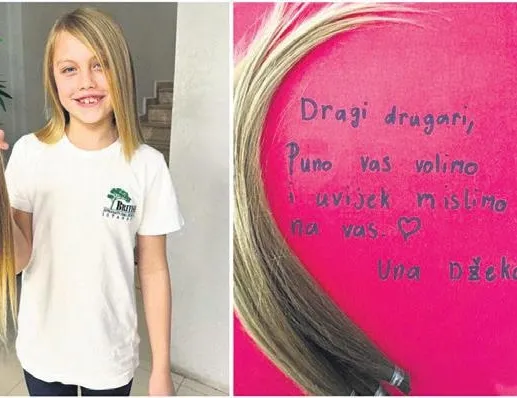 BRITISH
Dragi drugari,
Puno vas volimo
i uvijek mislimo
na vas. ♡
Una Džeko